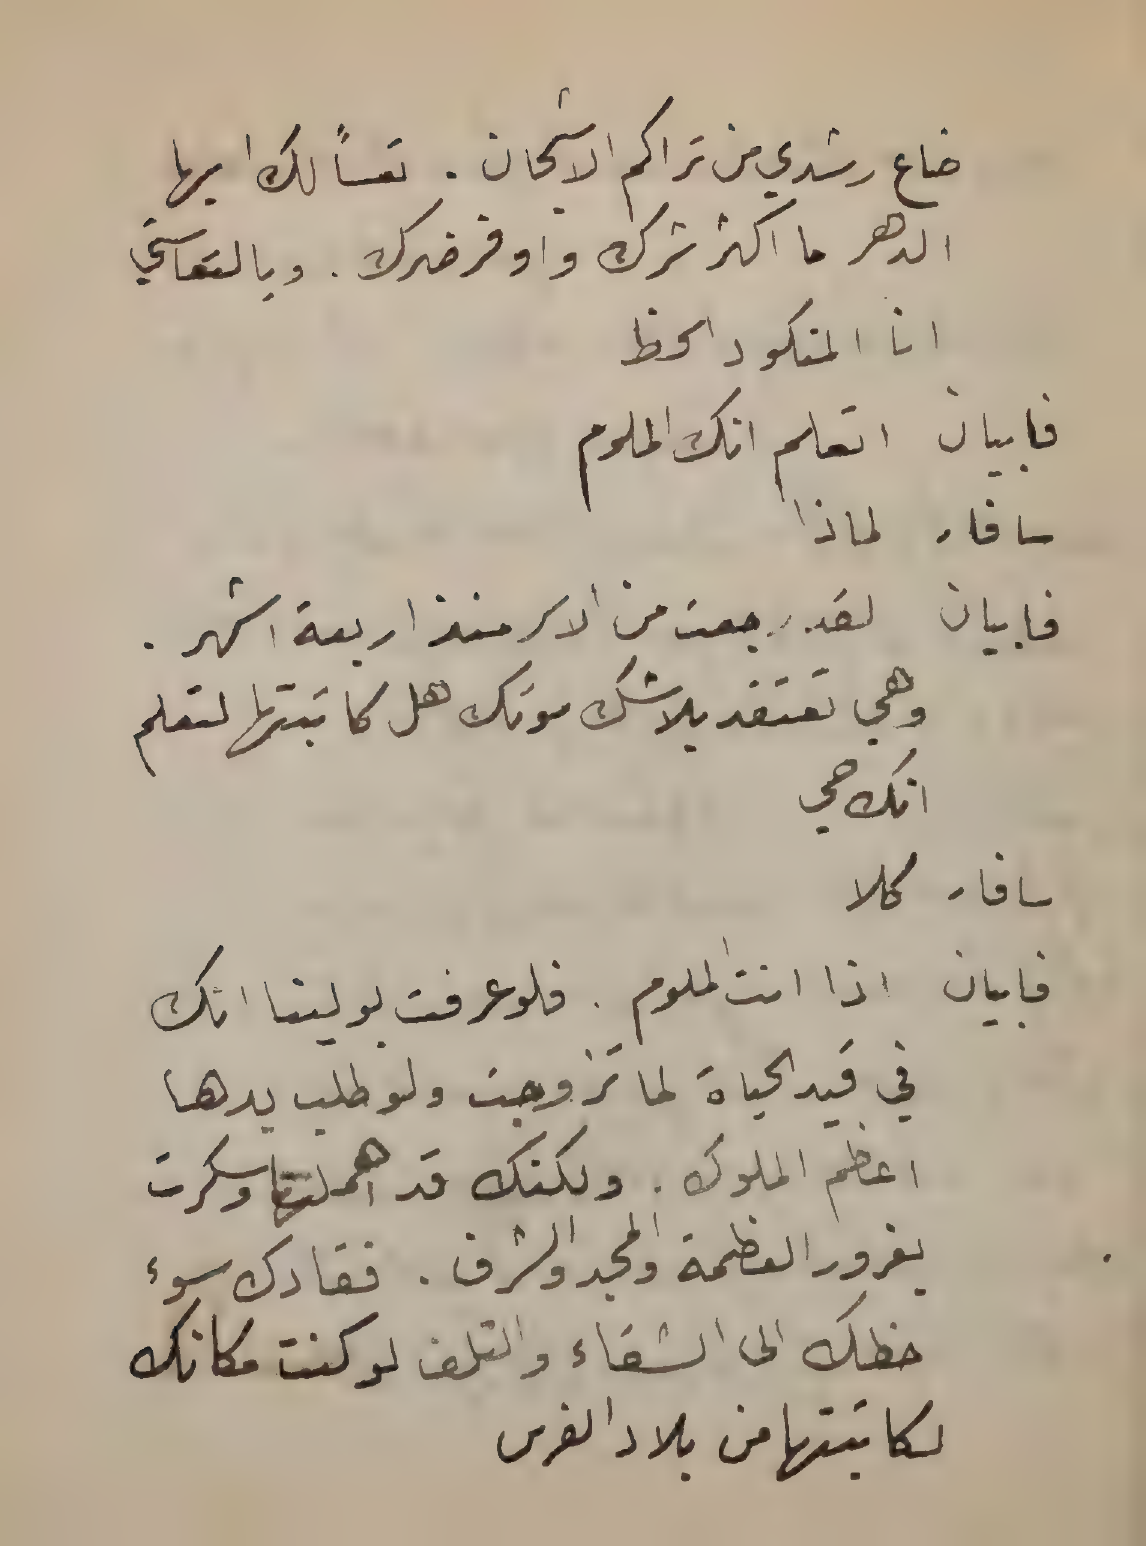 ضاع رشدي من تراكم الاشجان . تعساً لك ايها
الدهر ما اكثر شرك واوفر ضرك . ويا لتعاستي
انا المنكود الحظ
فابيان اتعلم انك الملوم
سافار لماذا
فابيان لقد رجعت من الاسر منذ اربعة اشهر .
وهي تعتقد بلا شك موتك هل كاتبتها لتعلم
انك حي
سافار كلا
فابيان اذا انت الملوم . فلو عرفت بولينا انك
في قيد الحياة لما تزوجت ولو طلب يدها
اعظم الملوك . ولكنك قد اهملتها وسكرت
بغرور العظمة والمجد والشرف . فقادك سوء
حظك الى الشقاء والتلف لو كنت مكانك
لكاتبتها من بلاد الفرس